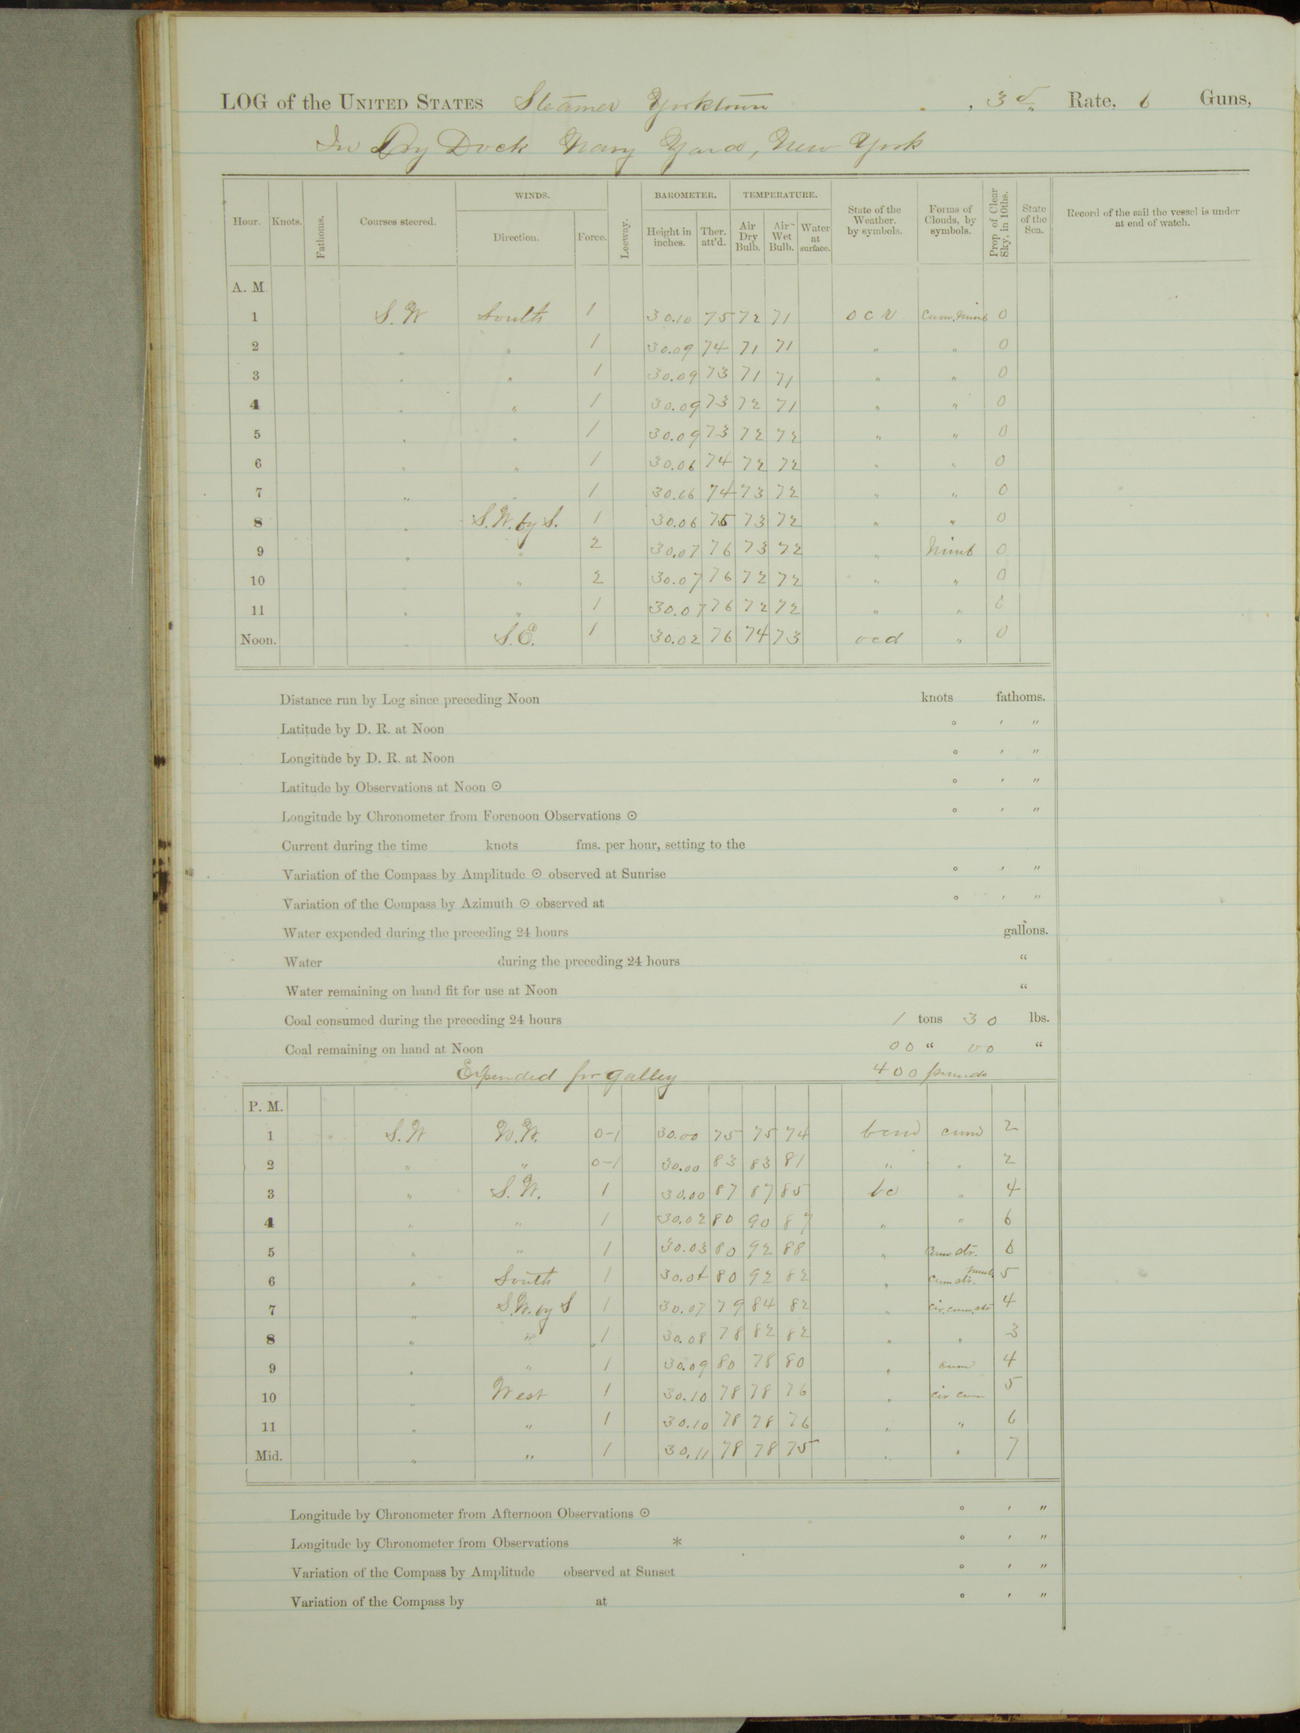 LOG of the UNITED STATES Steamer Yorktown, 3d Rate, 6 Guns,
In Dry Dock Navy Yard, New York
Hour. Knots. Fathoms. Courses steered. WINDS. Direction. Force. Leeway. BAROMETER. Height in inches. Ther. att'd. TEMPERATURE. Air Dry Bulb. Air Wet Bulb. Water at surface. State of the Weather. by symbols. Forms of Clouds, by symbols. Prop. of Clear Sky, in 10ths. State of the Sea. Record of the sail the vessel is under at end of watch.
A. M.
1 S.W South 1 30.10 75 72 71 o c r Cum. Nimb 0
2 " " 1 30.09 74 71 71 " " 0
3 " " 1 30.09 73 71 71 " " 0
4 " " 1 30.09 73 72 71 " " 0
5 " " 1 30.09 73 72 72 " " 0
6 " " 1 30.06 74 72 72 " " 0
7 " " 1 30.06 74 73 72 " " 0
8 " S.W. by S. 1 30.06 75 73 72 " " 0
9 " " 2 30.07 76 73 72 " Nimb 0
10 " 2 30.07 76 72 72 " " 0
11 " " 1 30.07 76 72 72 " " 0
Noon. " S.E. 1 30.02 76 74 73 ocd " 0
Distance run by Log since preceding Noon knots fathoms.
Latitude by D. R. at Noon ° ' "
Longitude by D. R. at Noon ° ' "
Latitude by Observations at Noon ⊙ ° ' "
Longitude by Chronometer from Forenoon Observations ⊙ ° ' "
Current during the time knots fms. per hour, setting to the
Variation of the Compass by Amplitude ⊙ observed at Sunrise ° ' "
Variation of the Compass by Azimuth ⊙ observed at ° ' "
Water expended during the preceding 24 hours gallons.
Water during the preceding 24 hours "
Water remaining on hand fit for use at Noon "
Coal consumed during the preceding 24 hours 1 tons 30 lbs.
Coal remaining on hand at Noon 00 " 00 "
Expended for galley 400 pounds
P. M.
1 S.W N.W. 0-1 30.00 75 75 74 bcm cum 2
2 " " 0-1 30.00 83 83 81 " " 2
3 " S.W. 1 30.00 87 87 85 bc " 4
4 " " 1 30.02 80 90 87 " " 6
5 " " 1 30.03 80 92 88 " Cum str. 6
6 " South 1 80 92 82 " Cum str. 5
7 " S.W. by S 1 30.07 79 84 82 " cir. cum. str 4
8 " " 1 30.08 78 82 82 " " 3
9 " " 1 30.09 80 78 80 " cum 4
10 " West 1 30.10 78 78 76 " cir cum 5
11 " " 1 30.10 78 78 76 " " 6
Mid. " " 1 30.11 78 78 75 " " 7
Longitude by Chronometer from Afternoon Observations ⊙ ° ' "
Longitude by Chronometer from Observations * ° ' "
Variation of the Compass by Amplitude observed at Sunset ° ' "
Variation of the Compass by at ° ' "